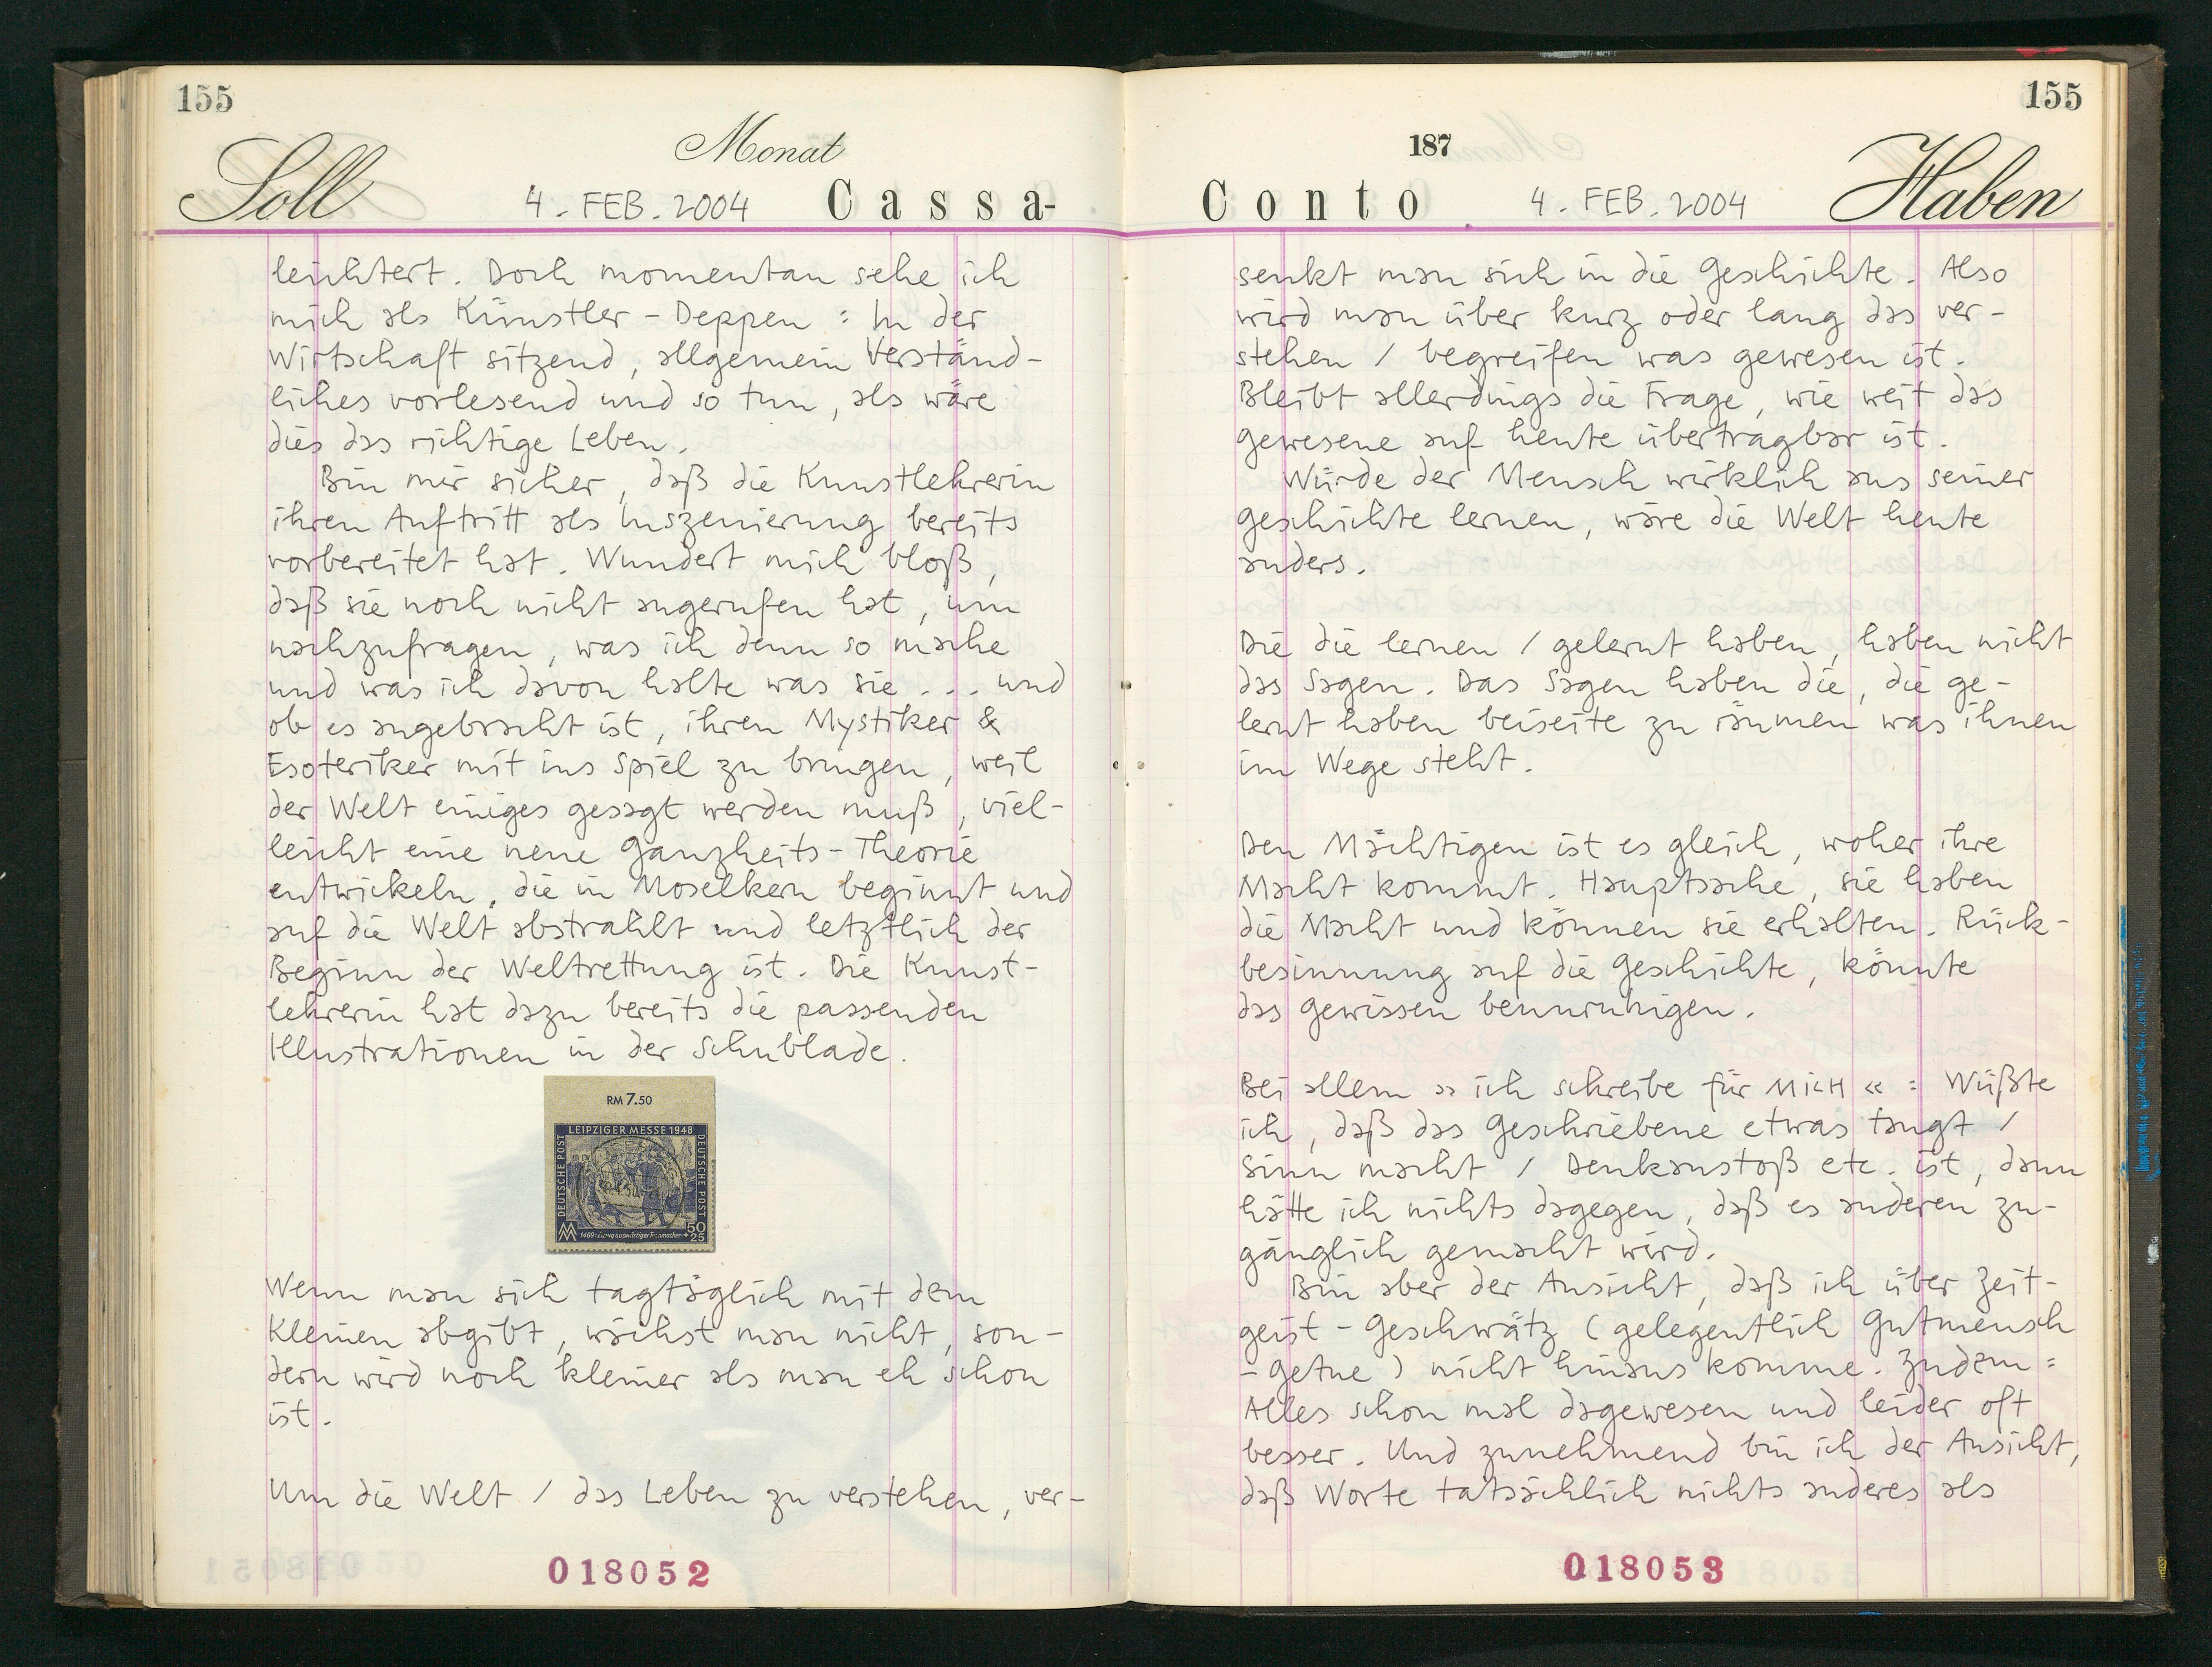 155
Soll
Monat
4. FEB. 2004
Cassa-
leichtert. Doch momentan sehe ich
mich als Künstler-Deppen: In der
Wirtschaft sitzend, allgemein Verständ-
liches vorlesend und so tun, als wäre
dies das richtige Leben.
Bin mir sicher, daß die Kunstlehrerin
ihren Auftritt als Inszenierung bereits
vorbereitet hat. Wundert mich bloß,
daß sie noch nicht angerufen hat, um
nachzufragen, was ich denn so mache
und was ich davon halte was sie ... und
ob es angebracht ist, ihren Mystiker &
Esoteriker mit ins Spiel zu bringen, weil
der Welt einiges gesagt werden muß, viel-
leicht eine neue Ganzheits-Theorie
entwickeln, die in Moselkern beginnt und
auf die Welt abstrahlt und letztlich der
Beginn der Weltrettung ist. Die Kunst-
lehrerin hat dazu bereits die passenden
Illustrationen in der Schublade.
RM 7.50
LEIPZIGER MESSE 1948
DEUTSCHE POST
DEUTSCHE POST
50
1469: Zuzug auswärtiger Tuchmacher + 25
Wenn man sich tagtäglich mit dem
Kleinen abgibt, wächst man nicht, son-
dern wird noch kleiner als man eh schon
ist.
Um die Welt / das Leben zu verstehen, ver-
018052
155
187
Conto
4. FEB. 2004
Haben
senkt man sich in die Geschichte. Also
wird man über kurz oder lang das ver-
stehen / begreifen was gewesen ist.
Bleibt allerdings die Frage, wie weit das
gewesene auf heute übertragbar ist.
Würde der Mensch wirklich aus seiner
Geschichte lernen, wäre die Welt heute
anders.
Die die lernen / gelernt haben, haben nicht
das Sagen. Das Sagen haben die, die ge-
lernt haben beiseite zu räumen was ihnen
im Wege steht.
Den Mächtigen ist es gleich, woher ihre
Macht kommt. Hauptsache, sie haben
die Macht und können sie erhalten. Rück-
besinnung auf die Geschichte, könnte
das Gewissen beunruhigen.
Bei allem »ich schreibe für MICH«: Wüßte
ich, daß das Geschriebene etwas taugt /
Sinn macht / Denkanstoß etc. ist, dann
hätte ich nichts dagegen, daß es anderen zu-
gänglich gemacht wird.
Bin aber der Ansicht, daß ich über Zeit-
geist-Geschwätz (gelegentlich Gutmensch
-Getue) nicht hinaus komme. Zudem:
Alles schon mal dagewesen und leider oft
besser. Und zunehmend bin ich der Ansicht,
daß Worte tatsächlich nichts anderes als
018053